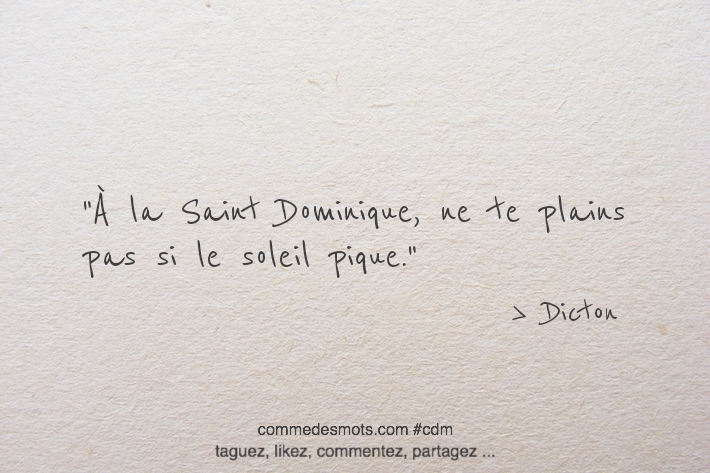 "À la Saint Dominique, ne te plains
pas si le soleil pique."
> Dicton
commedesmots.com #cdm
taguez, likez, commentez, partagez ...